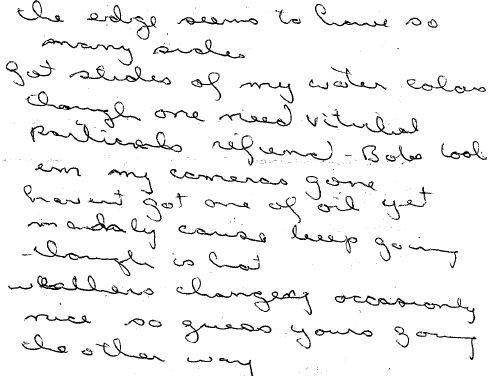 the edge seems to have so
many sides
got slides of my water colors
though one need
refund - Bobs took
em my cameras gone
havent got one of oil yet
cause keep going
though is hot
weathers changeing occasionly
nice so guess yours going
the other way